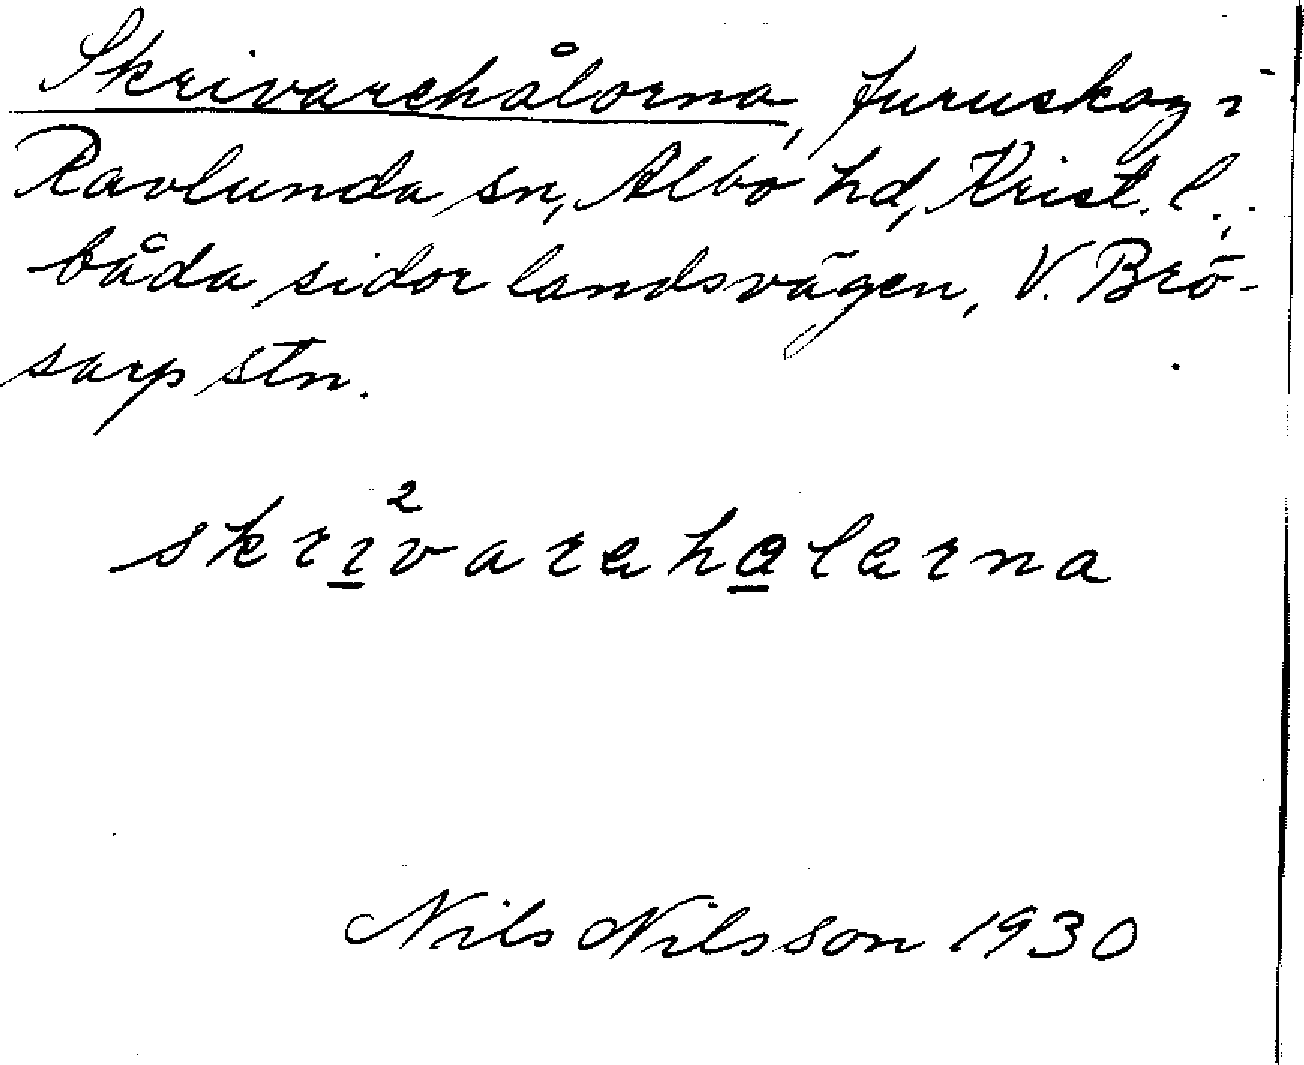 Skrivarehålorna, furuskog i
Ravlunda sn, Albo hd, Krist. l.,
båda sidor landsvägen, V. Brö-
sarp stn.
skrı̲²varehɑ̲lerna
Nils Nilsson 1930